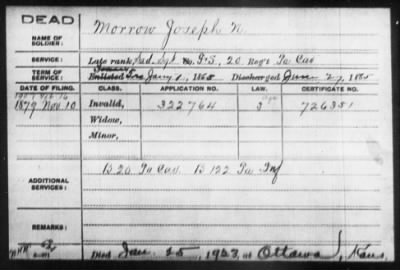 DEAD
NAME OF SOLDIER: Morrow Joseph N.
SERVICE: Late rank, Co. G & I, 20 Reg't Pa Cav
TERM OF SERVICE: Enlisted Jany 1, 1865 Discharged June 27, 1865
DATE OF FILING. CLASS. APPLICATION NO. LAW. CERTIFICATE NO.
1879 Nov. 10 Invalid, 322764 726351
Widow,
Minor,
ADDITIONAL SERVICES: B 20 Pa Cav. B 122 Pa Inf
REMARKS:
Died Jan. 25, 1923, at Ottawa, Kans.